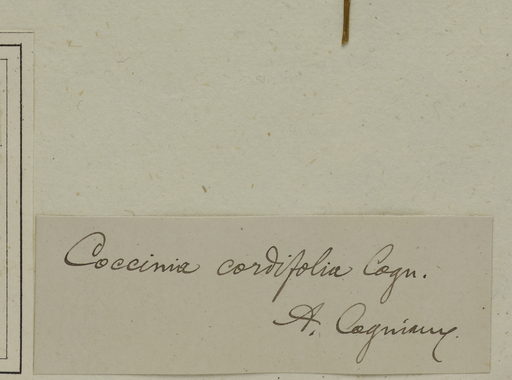 Coccinia cordifolia Cogn.
A. Cogniaux.